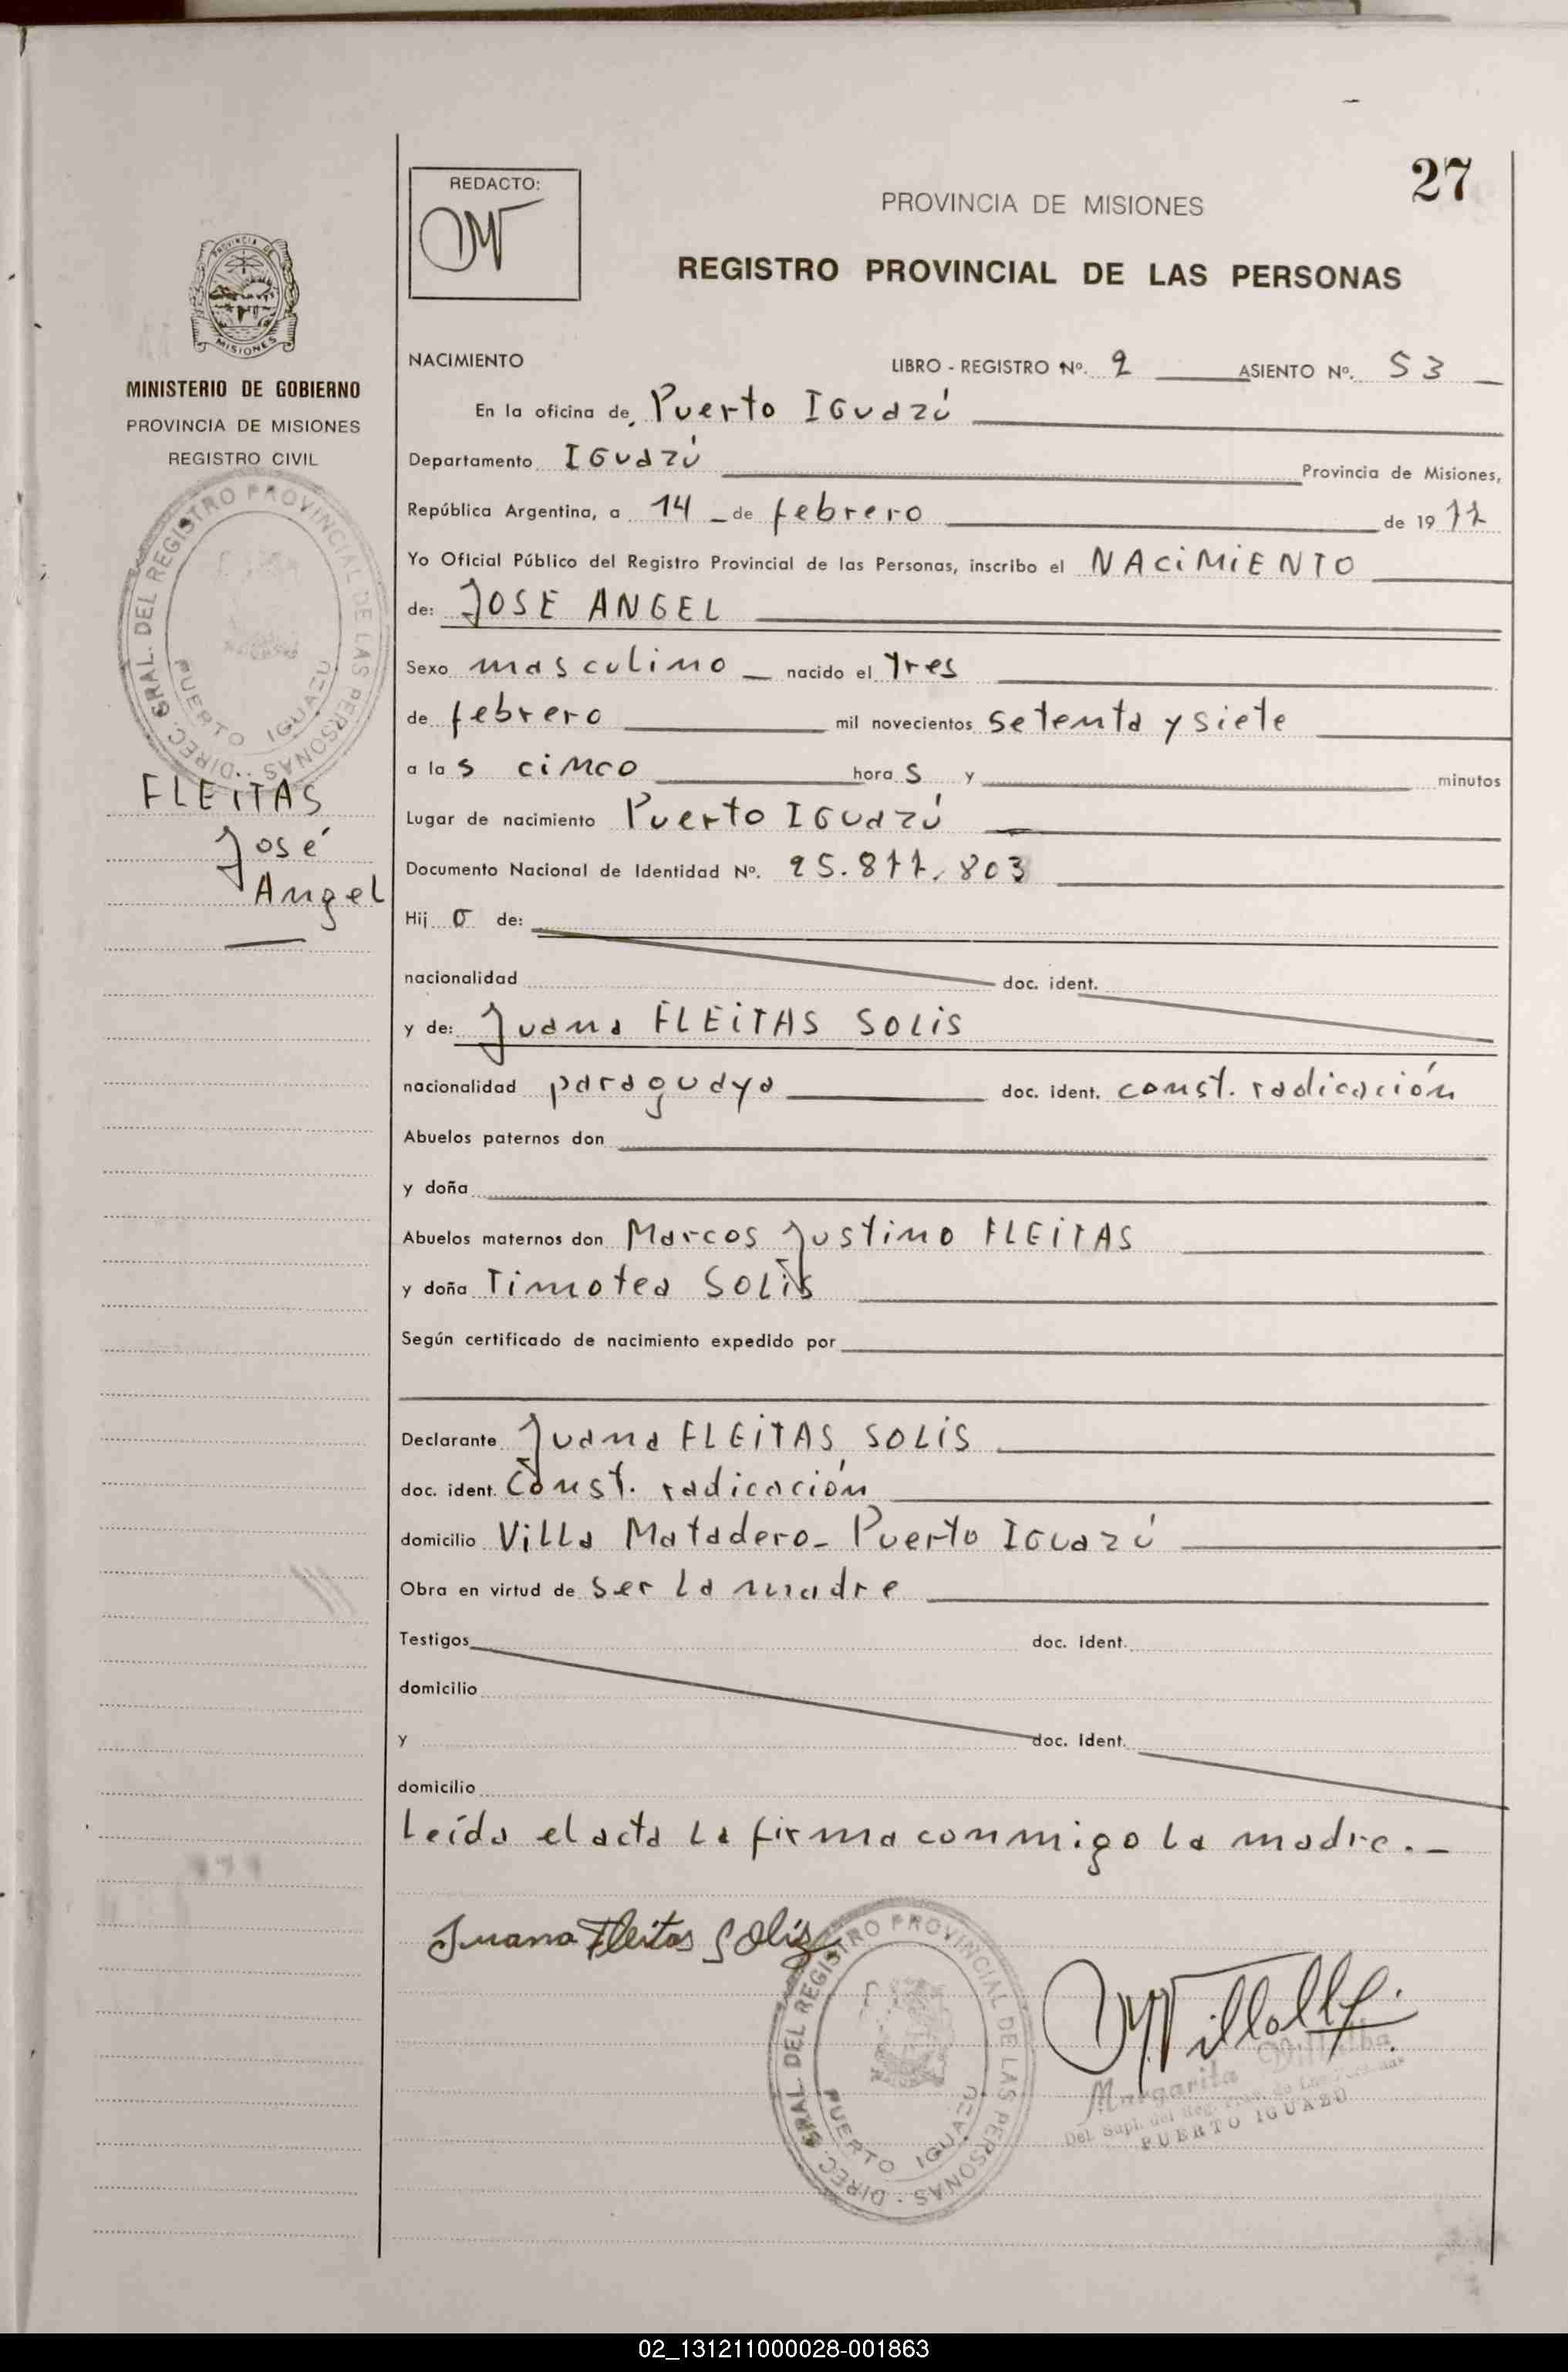 27
REDACTO:
PROVINCIA DE MISIONES
REGISTRO PROVINCIAL DE LAS PERSONAS
PROVINCIA DE
MISIONES
MINISTERIO DE GOBIERNO
PROVINCIA DE MISIONES
REGISTRO CIVIL
DIREC. GRAL. DEL REGISTRO PROVINCIAL DE LAS PERSONAS
PUERTO IGUAZU
FLEITAS
José
Angel
NACIMIENTO LIBRO - REGISTRO Nº. 2 ASIENTO Nº. 53
En la oficina de Puerto IGuazú
Departamento IGuazú Provincia de Misiones,
República Argentina, a 14 de febrero de 1977
Yo Oficial Público del Registro Provincial de las Personas, inscribo el NACiMiENTO
de: JOSE ANGEL
Sexo masculino nacido el tres
de febrero mil novecientos setenta y siete
a las cinco horas y minutos
Lugar de nacimiento Puerto IGuazú
Documento Nacional de Identidad Nº. 25.877.803
Hijo de:
nacionalidad doc. ident.
y de: Juana FLEiTAS SOLiS
nacionalidad paraguaya doc. ident. const. radicación
Abuelos paternos don
y doña
Abuelos maternos don Marcos Justino FLEiTAS
y doña Timotea SOLiS
Según certificado de nacimiento expedido por
Declarante Juana FLEiTAS SOLiS
doc. ident. Const. radicación
domicilio Villa Matadero - Puerto IGuazú
Obra en virtud de ser la madre
Testigos doc. ident.
domicilio
y doc. ident.
domicilio
Leída el acta la firma conmigo la madre. -
Juana Fleitas Solis
DIREC. GRAL. DEL REGISTRO PROVINCIAL DE LAS PERSONAS
PUERTO IGUAZU
Margarita Villalba
Del. Supl. del Reg. Prov. de Las Personas
PUERTO IGUAZU
02_131211000028-001863